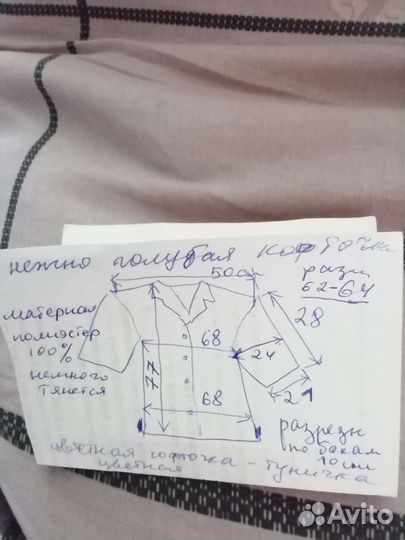 нежно голубая кофточка
50см
разм
62-64
материал
полиэстер
100%
немного
тянется
68
77
28
24
21
68
разрезы
по бокам
10см
цветная кофточка - туничка
цветная
Avito